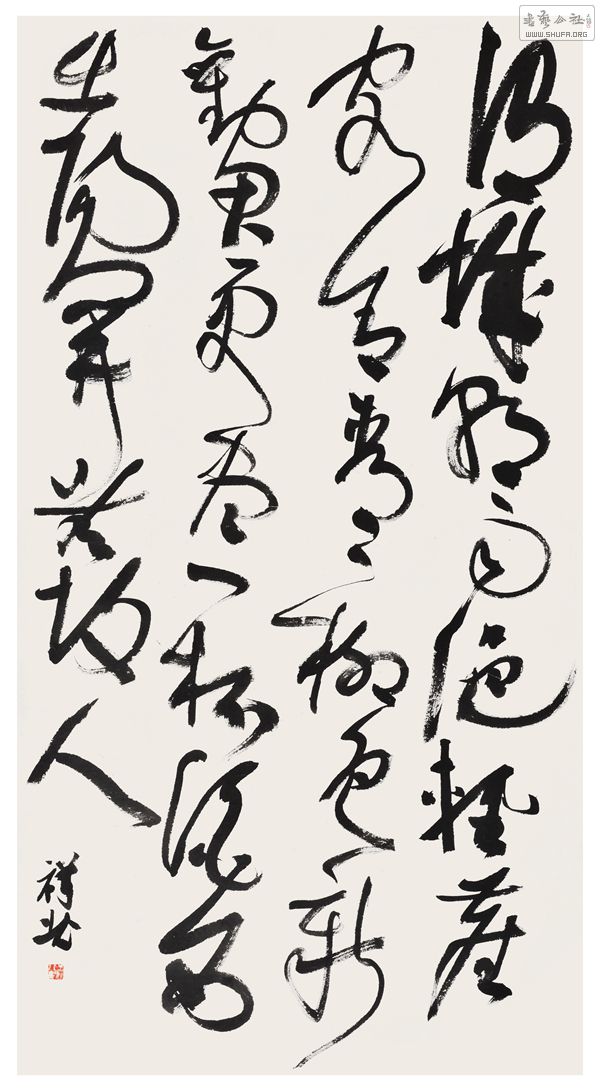 书艺公社
WWW.SHUFA.ORG
渭城朝雨浥輕塵
客舍青〻柳色新
勸君更盡一杯酒西
出陽關無故人
祥